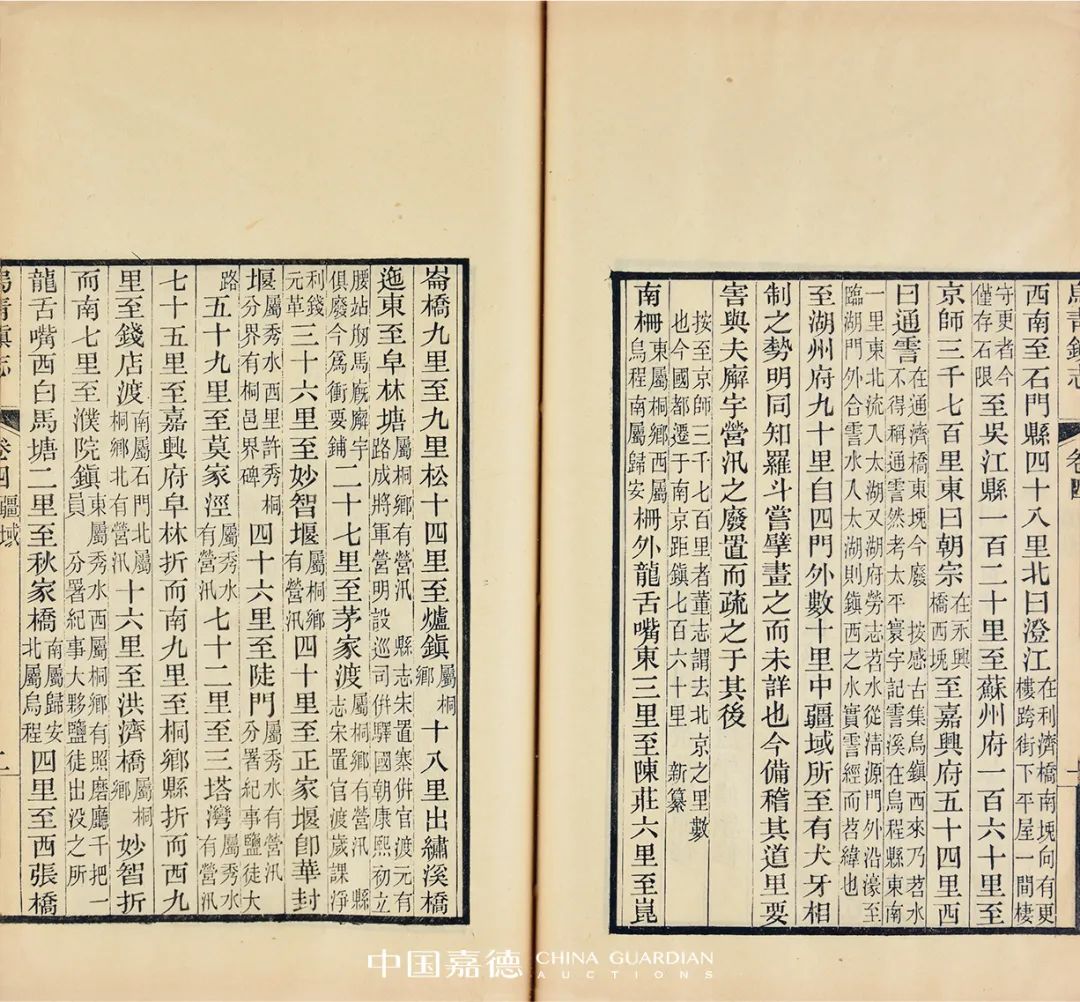 烏青鎮志 卷四
西南至石門縣四十八里北曰澄江在利濟橋南堍向有更樓跨街下平屋一間棲
守更者今僅存石限至吳江縣一百二十里至蘇州府一百六十里至
京師三千七百里東曰朝宗在永興橋西堍至嘉興府五十四里西
曰通霅在通濟橋東堍今廢 按感古集烏鎮西來乃苕水不得稱通霅然考太平寰宇記霅溪在烏程縣東南
一里東北流入太湖又湖府勞志苕水從清源門外沿濠至臨湖門外合霅水入太湖則鎮西之水實霅經而苕緯也
至湖州府九十里自四門外數十里中疆域所至有犬牙相
制之勢明同知羅斗嘗擘畫之而未詳也今備稽其道里要
害與夫廨宇營汛之廢置而疏之于其後
按至京師三千七百里者董志謂去北京之里數也今國都遷于南京距鎮七百六十里 新纂
南柵東屬桐鄉西屬烏程南屬歸安柵外龍舌嘴東三里至陳莊六里至崑
崙橋九里至九里松十四里至爐鎮屬桐鄉十八里出繡溪橋
迤東至阜林塘屬桐鄉有營汛 縣志朱置寨併官渡元有路成將軍營明設巡司併驛國朝康熙初立
腰站馬廐廨宇俱廢今爲衝要鋪二十七里至茅家渡屬桐鄉有營汛 縣志宋置官渡歲課淨
利錢元革三十六里至妙智堰屬桐鄉有營汛四十里至正家堰卽華封
堰屬秀水西里許秀桐分界有桐邑界碑四十六里至陡門屬秀水有營汛分署紀事鹽徒大
路五十九里至莫家涇屬秀水有營汛七十二里至三塔灣屬秀水有營汛
七十五里至嘉興府阜林折而南九里至桐鄉縣折而西九
里至錢店渡南屬石門北屬桐鄉北有營汛十六里至洪濟橋屬桐鄉妙智折
而南七里至濮院鎮東屬秀水西屬桐鄉有照磨廳千把一員 分署紀事大夥鹽徒出没之所
龍舌嘴西白馬塘二里至秋家橋南屬歸安北屬烏程四里至西張橋
烏青鎮志 卷四 疆域 二
中国嘉德 CHINA GUARDIAN AUCTIONS